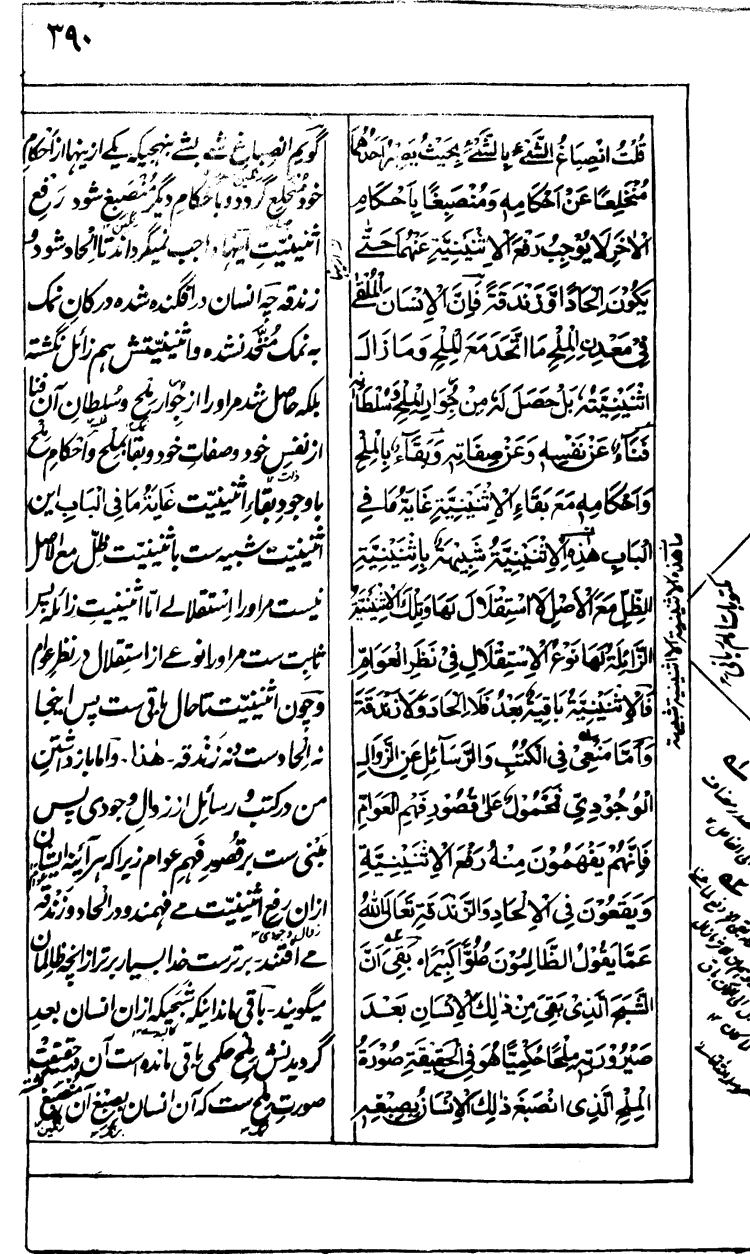 ۳۹۰
قُلْتُ انْصِبَاغُ الشَّيْءِ بِالشَّيْءِ بِحَيْثُ يَصِيْرُ اَحَدُهُمَا
مُنْخَلِعًا عَنْ اَحْكَامِهٖ وَمُنْصَبِغًا بِاَحْكَامِ
الْاٰخَرِ لَا يُوْجِبُ رَفْعَ الْاِثْنَيْنِيَّةِ عَنْهُمَا حَتّٰى
يَكُوْنَ اِلْحَادًا وَّزَنْدَقَةً فَاِنَّ الْاِنْسَانَ الْمُلْقٰى
فِيْ مَعْدِنِ الْمِلْحِ مَا اتَّحَدَ مَعَ الْمِلْحِ وَمَا زَالَ
اثْنَيْنِيَّتُهٗ بَلْ حَصَلَ لَهٗ مِنْ جِوَارِ الْمِلْحِ وَسُلْطَانِهٖ
فَنَاءٌ عَنْ نَفْسِهٖ وَعَنْ صِفَاتِهٖ وَبَقَاءٌ بِالْمِلْحِ
وَاَحْكَامِهٖ مَعَ بَقَاءِ الْاِثْنَيْنِيَّةِ غَايَةُ مَا فِي
الْبَابِ هٰذِهِ الْاِثْنَيْنِيَّةُ شَبِيْهَةٌ بِاثْنَيْنِيَّةِ
الظِّلِّ مَعَ الْاَصْلِ لَا اسْتِقْلَالَ لَهَا وَتِلْكَ الْاِثْنَيْنِيَّةُ
الزَّائِلَةُ لَهَا نَوْعُ الْاِسْتِقْلَالِ فِيْ نَظَرِ الْعَوَامِّ
فَالْاِثْنَيْنِيَّةُ بَاقِيَةٌ بَعْدُ فَلَا اِلْحَادَ وَلَا زَنْدَقَةَ
وَاَمَّا مَنْعِيْ فِي الْكُتُبِ وَالرَّسَائِلِ عَنِ الزَّوَالِ
الْوُجُوْدِيِّ فَمَحْمُوْلٌ عَلٰى قُصُوْرِ فَهْمِ الْعَوَامِّ
فَاِنَّهُمْ يَفْهَمُوْنَ مِنْهُ رَفْعَ الْاِثْنَيْنِيَّةِ
وَيَقَعُوْنَ فِي الْاِلْحَادِ وَالزَّنْدَقَةِ تَعَالَى اللّٰهُ
عَمَّا يَقُوْلُ الظَّالِمُوْنَ عُلُوًّا كَبِيْرًا بَقِيَ اَنَّ
الشَّبَحَ الَّذِيْ بَقِيَ مِنْ ذٰلِكَ الْاِنْسَانِ بَعْدَ
صَيْرُوْرَتِهٖ مِلْحًا حُكْمِيًّا هُوَ فِي الْحَقِيْقَةِ صُوْرَةُ
الْمِلْحِ الَّذِيْ انْصَبَغَ ذٰلِكَ الْاِنْسَانُ بِصِبْغِهٖ
گویم انصباغ شے بشے بنہجیکہ یکے ازینہا از احکام
خود منخلع گردد و باحکام دیگر منصبغ شود رفع
اثنینیت اینہا واجب نمیگرداند تا الحاد شود و
زندقہ چہ انسان در افگندہ شدہ در کان نمک
بہ نمک متحد نشدہ و اثنینیتش ہم زائل نگشتہ
بلکہ حاصل شد مر او را از جوار ملح و سلطان آن فنا
از نفس خود و صفات خود و بقا بملح و احکام ملح
باوجود بقاء اثنینیت غایۃ ما فی الباب این
اثنینیت شبیہ ست باثنینیت ظل مع الاصل
نیست مر او را استقلالے اما اثنینیت زائلہ پس
ثابت ست مر او را نوعے از استقلال در نظر عوام
و چون اثنینیت تا حال باقی ست پس اینجا
نہ الحاد ست نہ زندقہ - ھذا - و اما باز داشتن
من در کتب و رسائل از زوال وجودی پس
مبنی ست بر قصور فہم عوام زیرا کہ ہر آئینہ ایشان
ازان رفع اثنینیت مے فہمند و در الحاد و زندقہ
مے افتند - برتر ست خدا بسیار برتر از انچہ ظالمان
میگویند - باقی ماند اینکہ شبحیکہ ازان انسان بعد
گردیدنش ملح حکمی باقی ماندہ است آن در حقیقت
صورت ملح ست کہ آن انسان بصبغ آن منصبغ
ما ھذہ الاثنینیۃ الا اثنینیۃ شبیھۃ
مکتوبات امام ربانی